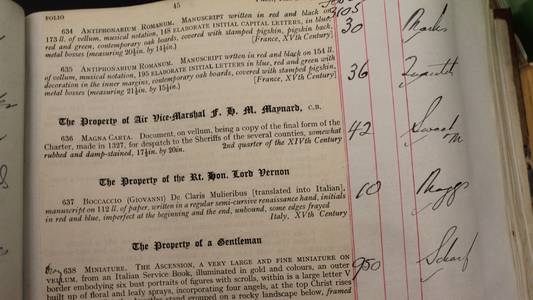 FOLIO 45
634 ANTIPHONARIUM ROMANUM. MANUSCRIPT written in red and black on
173 ll. of vellum, musical notation, 148 ELABORATE INITIAL CAPITAL LETTERS, in blue,
red and green, contemporary oak boards, covered with stamped pigskin, pigskin back,
metal bosses (measuring 20½in. by 14½in.) [France, XVth Century]
30
635 ANTIPHONARIUM ROMANUM. MANUSCRIPT written in red and black on 154 ll.
of vellum, musical notation, 195 ELABORATE INITIAL LETTERS in blue, red and green with
decoration in the inner margins, contemporary oak boards, covered with stamped pigskin,
metal bosses (measuring 21½in. by 15½in.) [France, XVth Century]
36
The Property of Air Vice-Marshal F. H. M. Maynard, C.B.
636 MAGNA CARTA. Document, on vellum, being a copy of the final form of the
Charter, made in 1327, for despatch to the Sheriffs of the several counties, somewhat
rubbed and damp-stained, 17½in. by 20in. 2nd quarter of the XIVth Century
42
The Property of the Rt. Hon. Lord Vernon
637 BOCCACCIO (GIOVANNI) De Claris Mulieribus [translated into Italian],
manuscript on 112 ll. of paper, written in a regular semi-cursive renaissance hand, initials
in red and blue, imperfect at the beginning and the end, unbound, some edges frayed
Italy, XVth Century
10 Maggs
The Property of a Gentleman
638 MINIATURE. THE ASCENSION, A VERY LARGE AND FINE MINIATURE ON
VELLUM, from an Italian Service Book, illuminated in gold and colours, an outer
border embodying six bust portraits of figures with scrolls, within is a large letter V
built up of floral and leafy sprays, incorporating four angels, at the top Christ rises
stand grouped on a rocky landscape below, framed
950